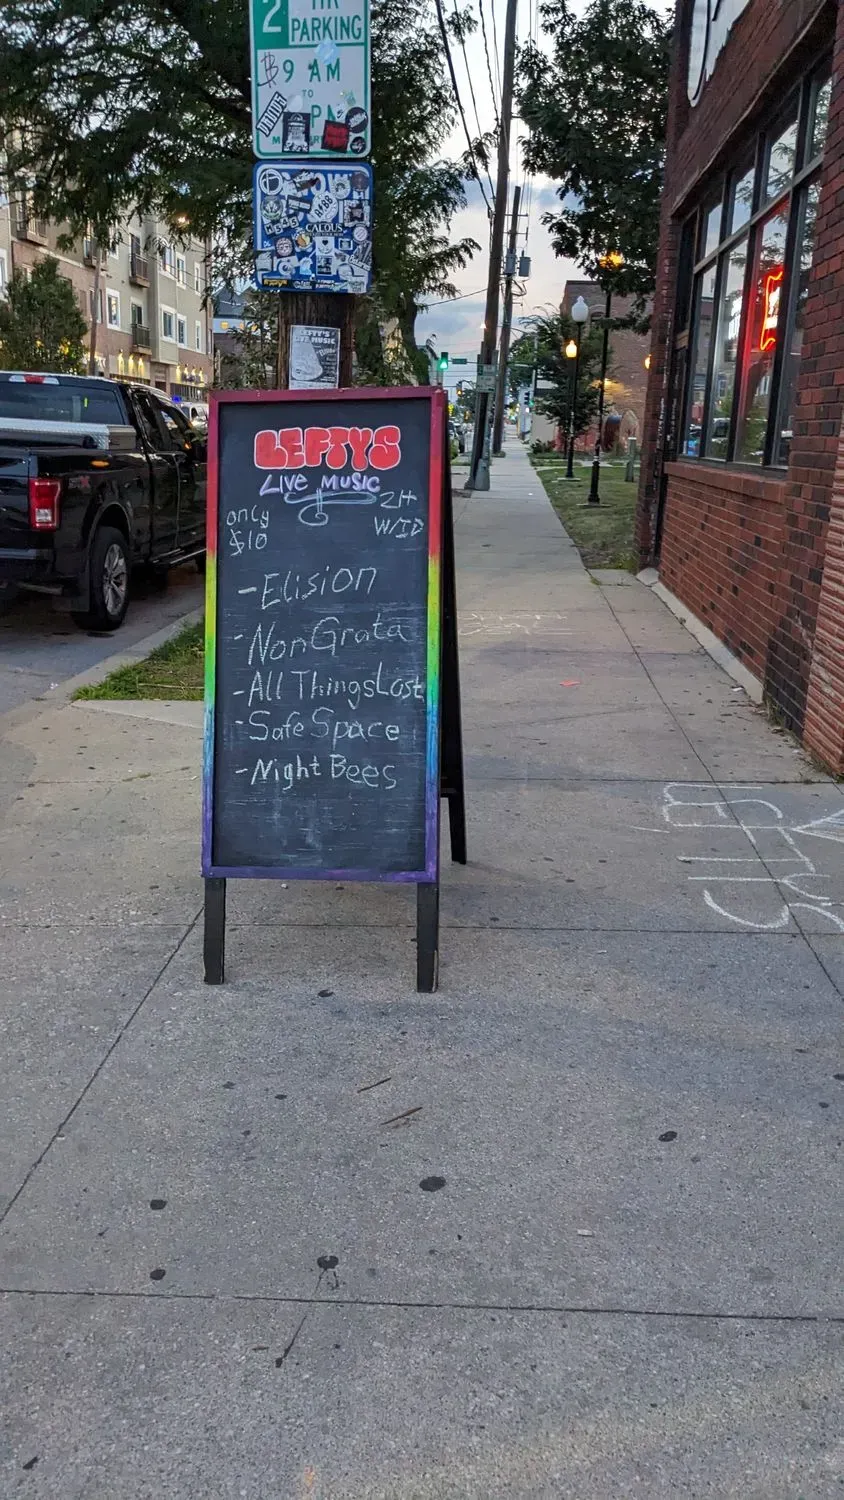 2 HR
PARKING
9 AM
TO
PM
CALOUS
LEFTY'S
LIVE MUSIC
LEFTYS
LIVE MUSIC
only
$10
21+
W/ID
-Elision
-NonGrata
-All Things Lost
-Safe Space
-Night Bees